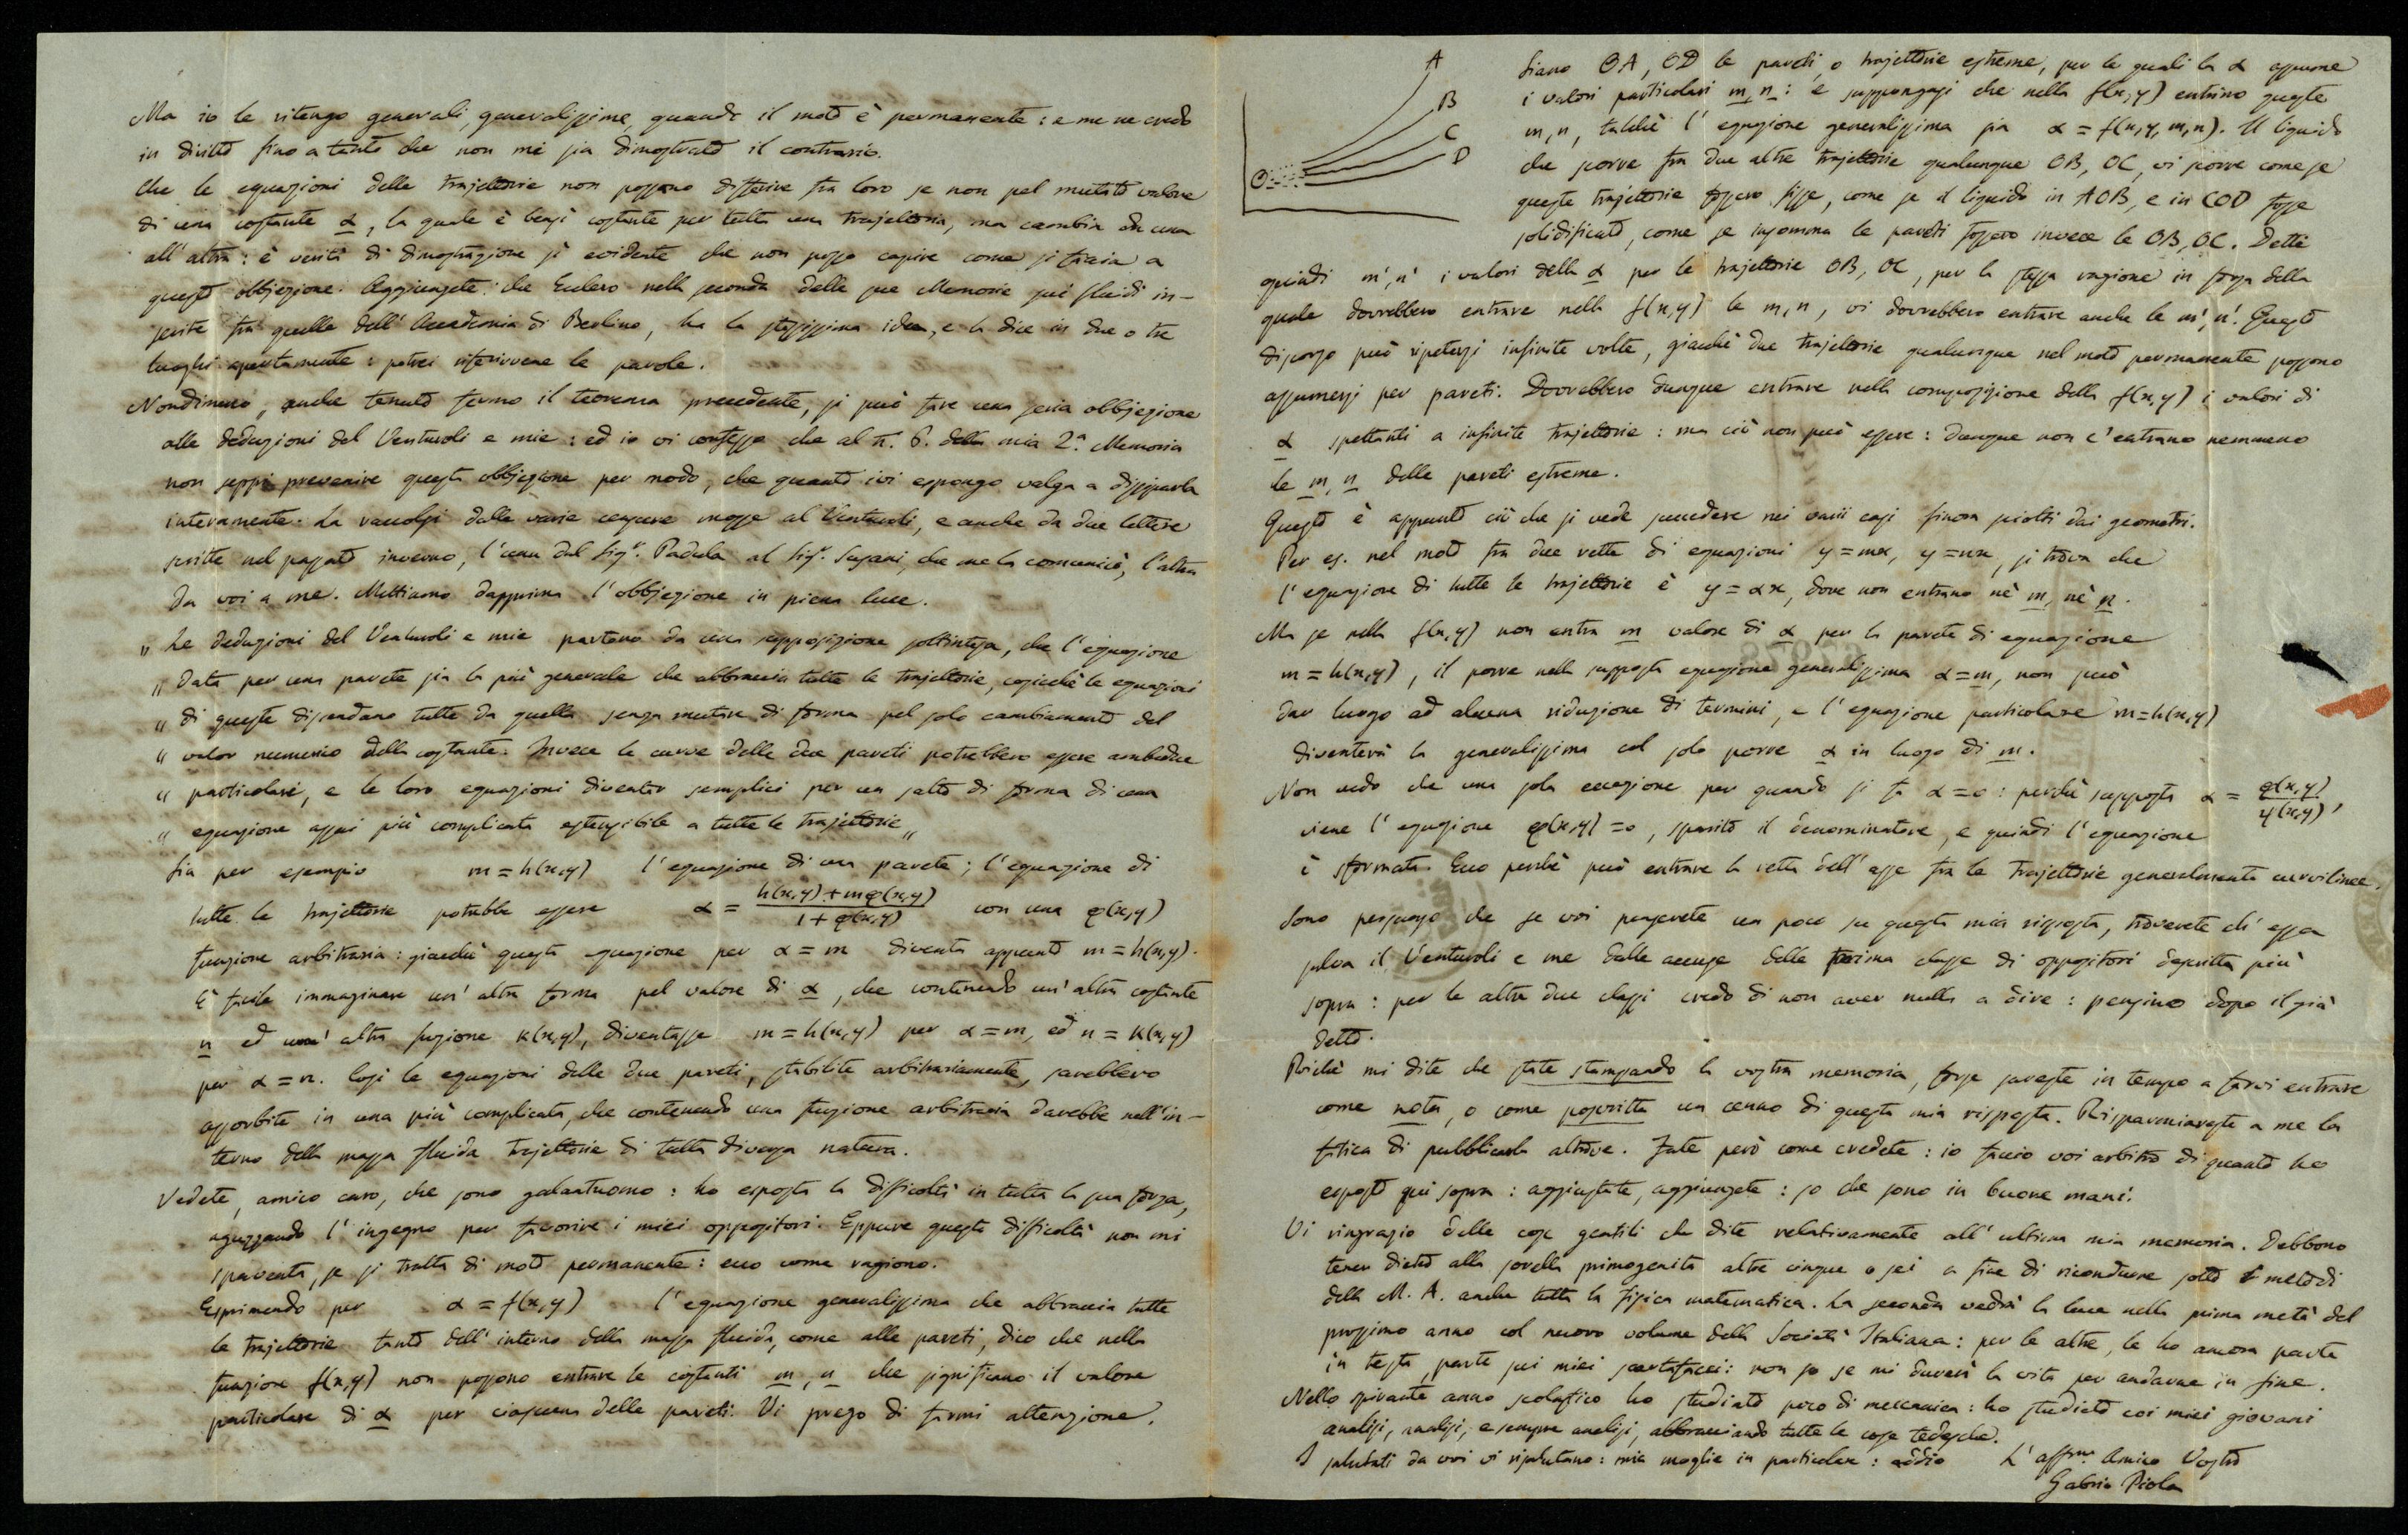 Ma io le ritengo generali, generalissime, quando il moto è permanente: e me ne credo
in diritto fino a tanto che non mi sia dimostrato il contrario.
Che le equazioni delle trajettorie non possano differire fra loro se non pel mutato valore
di una costante α, la quale è bensì costante per tutta una trajettoria, ma cambia da una
all'altra: è verità di dimostrazione sì evidente che non posso capire come si faccia a
questo obbjezione. Aggiungete: che Eulero nella seconda delle sue Memorie sui fluidi in-
serite fra quelle dell'Accademia di Berlino, ha la stessissima idea, e la dice in due o tre
luoghi apertamente: potrei riferirvene le parole.
Nondimeno, anche tenuto fermo il teorema precedente, si può fare una seria obbjezione
alle deduzioni del Venturoli e mie: ed io vi confesso che al n.º 6. della mia 2.ª Memoria
non seppi prevenire questa obbjezione per modo, che quanto ivi espongo valga a dissiparla
interamente. La raccolsi dalle varie censure mosse al Venturoli, e anche da due lettere
scritte nel passato inverno, l'una dal Sig.r Padula al Sig.r Susani, che me la comunicò, l'altra
da voi a me. Mettiamo dapprima l'obbjezione in piena luce.
„ Le deduzioni del Venturoli e mie partono da una supposizione sottintesa, che l'equazione
„ data per una parete sia la più generale che abbraccia tutte le trajettorie, cosicchè le equazioni
„ di queste discendano tutte da quella senza mutare di forma pel solo cambiamento del
„ valor numerico della costante. Invece le curve delle due pareti potrebbero essere ambedue
„ particolari, e le loro equazioni diventar semplici per un salto di forma di una
„ equazione assai più complicata estensibile a tutte le trajettorie „
Sia per esempio m = h(x,y) l'equazione di una parete; l'equazione di
tutte le trajettorie potrebbe essere α = h(x,y) + mφ(x,y) / 1 + φ(x,y) con una φ(x,y)
funzione arbitraria: giacchè questa equazione per α = m diventa appunto m = h(x,y).
È facile immaginare un'altra forma pel valore di α, che contenendo un'altra costante
n ed una altra funzione k(x,y), diventasse m = h(x,y) per α = m, ed n = k(x,y)
per α = n. Così le equazioni delle due pareti, stabilite arbitrariamente, sarebbero
assorbite in una più complicata, che contenendo una funzione arbitraria darebbe nell'in-
terno della massa fluida trajettorie di tutta diversa natura.
Vedete, amico caro, che sono galantuomo: ho esposta la difficoltà in tutta la sua forza,
aguzzando l'ingegno per favorire i miei oppositori. Eppure questa difficoltà non mi
spaventa, se si tratta di moto permanente: ecco come ragiono.
Esprimendo per α = f(x,y) l'equazione generalissima che abbraccia tutte
le trajettorie tanto dell'interno della massa fluida, come alle pareti, dico che nella
funzione f(x,y) non possono entrare le costanti m, n che significano il valore
particolare di α per ciascuna delle pareti. Vi prego di farmi attenzione.
A
B
C
D
O
Siano OA, OD le pareti, o trajettorie estreme, per le quali la α assume
i valori particolari m, n: e suppongasi che nella f(x,y) entrino queste
m, n, talchè l'equazione generalissima sia α = f(x,y,m,n). Il liquido
che scorre fra due altre trajettorie qualunque OB, OC, vi scorre come se
queste trajettorie fossero fisse, come se il liquido in AOB, e in COD fosse
solidificato, come se insomma le pareti fossero invece le OB, OC. Dette
quindi m', n' i valori della α per le trajettorie OB, OC, per la stessa ragione in forza della
quale dovrebbero entrare nella f(x,y) le m, n, vi dovrebbero entrare anche le m', n'. Questo
discorso può ripetersi infinite volte, giacchè due trajettorie qualunque nel moto permanente possono
assumersi per pareti. Dovrebbero dunque entrare nella composizione della f(x,y) i valori di
α spettanti a infinite trajettorie: ma ciò non può essere: dunque non c'entrano nemmeno
le m, n delle pareti estreme.
Questo è appunto ciò che si vede succedere nei varii casi finora sciolti dai geometri.
Per es. nel moto fra due rette di equazioni y = mx, y = nx, si trova che
l'equazione di tutte le trajettorie è y = αx, dove non entrano nè m, nè n.
Ma se nella f(x,y) non entra m valore di α per la parete di equazione
m = h(x,y), il porre nella supposta equazione generalissima α = m, non può
dar luogo ad alcuna riduzione di termini, e l'equazione particolare m = h(x,y)
diventerà la generalissima col solo porre α in luogo di m.
Non vedo che una sola eccezione per quando si fa α = 0: perchè supposta α = φ(x,y) / ψ(x,y),
viene l'equazione φ(x,y) = 0, sparito il denominatore, e quindi l'equazione
è sformata. Ecco perchè può entrare la retta dell'asse fra le trajettorie generalmente curvilinee.
Sono persuaso che se voi penserete un poco su questa mia risposta, troverete ch'essa
salva il Venturoli e me dalle accuse della prima classe di oppositori descritta più
sopra: per le altre due classi credo di non aver nulla a dire: pensino dopo il già
detto.
Poichè mi dite che state stampando la vostra memoria, forse sareste in tempo a farvi entrare
come nota, o come poscritta un cenno di questa mia risposta. Risparmiereste a me la
fatica di pubblicarla altrove. Fate però come credete: io faccio voi arbitro di quanto ho
esposto qui sopra: aggiustate, aggiungete: so che sono in buone mani.
Vi ringrazio delle cose gentili che dite relativamente all'ultima mia memoria. Debbono
tener dietro alla sorella primogenita altre cinque o sei a fine di ricondurre sotto i metodi
della M. A. anche tutta la fisica matematica. La seconda vedrà la luce nella prima metà del
prossimo anno col nuovo volume della Società Italiana: per le altre, le ho ancora parte
in testa, parte sui miei scartafacci: non so se mi durerà la vita per andarne in fine.
Nello spirante anno scolastico ho studiato poco di meccanica: ho studiato coi miei giovani
analisi, analisi, e sempre analisi, abbracciando tutte le cose tedesche.
I salutati da voi vi risalutano: mia moglie in particolare: addio L'aff.mo Amico Vostro
Gabrio Piola